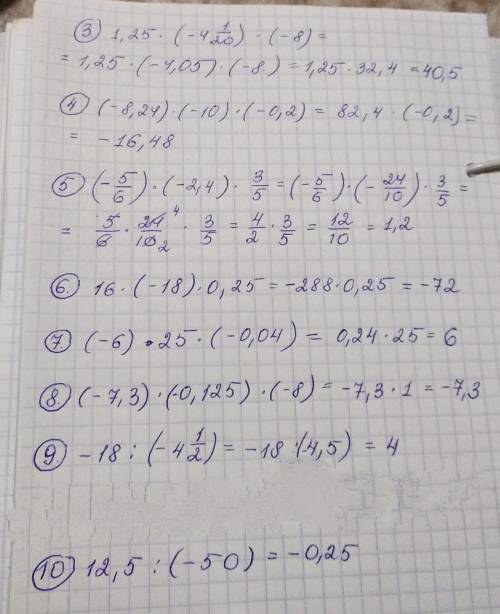 ③ 1,25 · (-4 1/20) · (-8) =
= 1,25 · (-4,05) · (-8) = 1,25 · 32,4 = 40,5
④ (-8,24) · (-10) · (-0,2) = 82,4 · (-0,2) =
= -16,48
⑤ (-5/6) · (-2,4) · 3/5 = (-5/6) · (-24/10) · 3/5 =
= 5/6 · 24 4/10 2 · 3/5 = 4/2 · 3/5 = 12/10 = 1,2
⑥ 16 · (-18) · 0,25 = -288 · 0,25 = -72
⑦ (-6) · 25 · (-0,04) = 0,24 · 25 = 6
⑧ (-7,3) · (-0,125) · (-8) = -7,3 · 1 = -7,3
⑨ -18 : (-4 1/2) = -18 : (-4,5) = 4
⑩ 12,5 : (-50) = -0,25